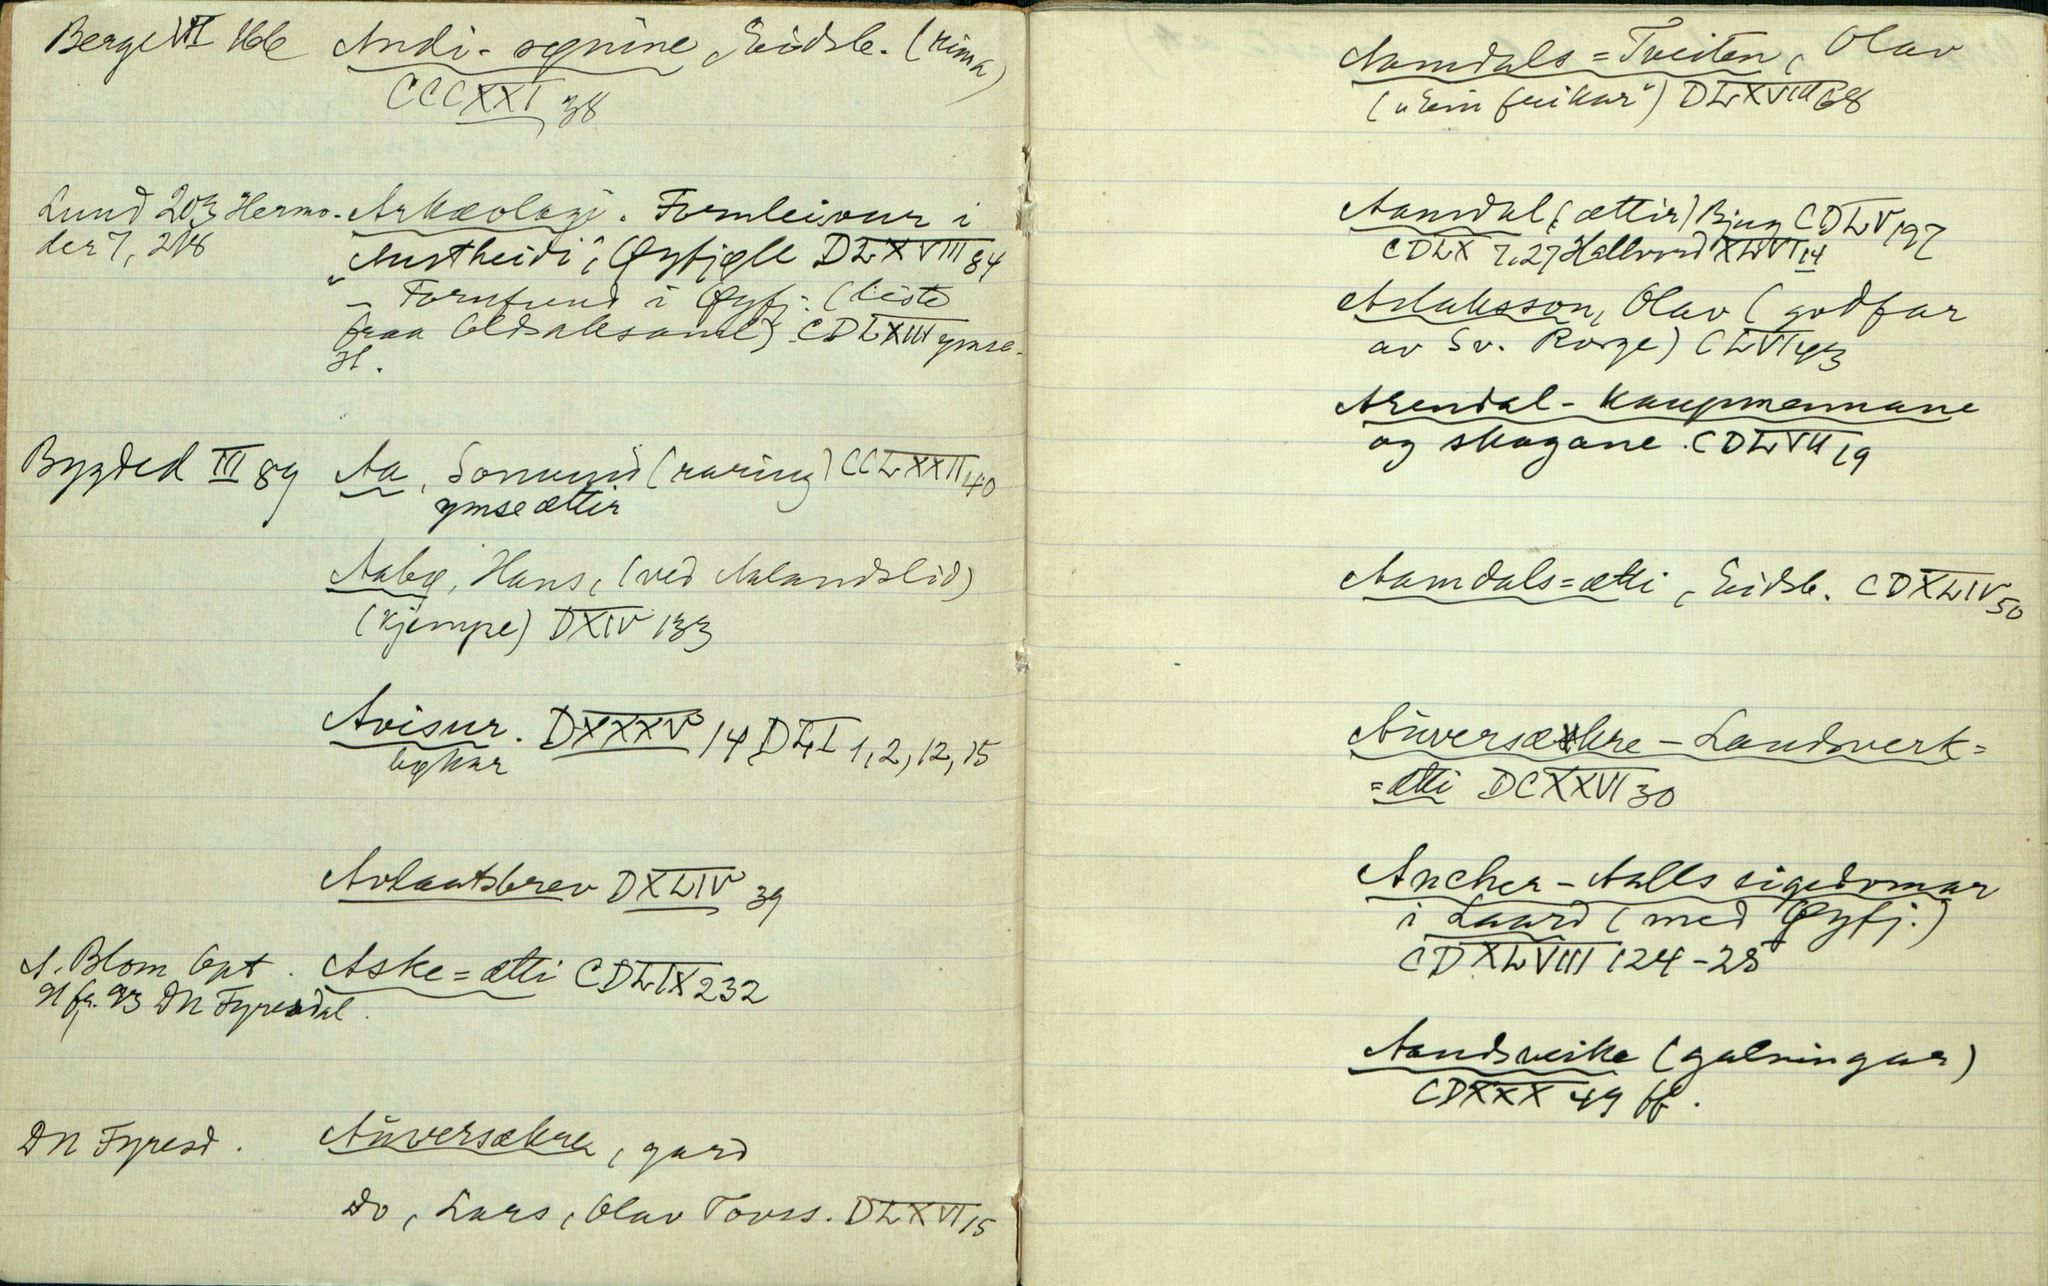 Berge VII 166 Andi-sognine, Eidsb. (rima)
CCCXXI 38
Lund 203 Hermo- Arkæologi. Fornleivur i
der 7, 218 "Austheidi", Øyfjell DLXVIII 84
- Fornfund i Øyfj. (liste
fraa Oldsaksaml) CDLXIII ymse
st.
Bygded III 89 Aa, Somund (raring) CCLXXII 40
ymse ættir
Aabø, Hans, (ved Aalandslid)
(kjempe) DXIV 133
Avisur. DXXXV 14 DLI 1, 2, 12, 15
bøkar
Avlaatsbrev DXLIV 39
A. Blom Opt. Aske=ætti CDLIX 232
91 fr. 93 DN Fyresdal.
DN Fyresd. Auversækre, gard
Do, Lars, Olav Tovss. DLXVI 15
Aamdals=Tveiten, Olav
("Ein frikar") DLXVIII 68
Aamdal, (ættir) Bjug CDLV 197
CDLX 7, 27 Hallvord XLVI 14
Aslaksson, Olav (godfar
av Sv. Rorge) CLVI 43
Arendal-kaupmennane
og skogane. CDLVII 19
Aamdals=ætti, Eidsb. CDXLIV 50
Auversækre - Landsverk=
=ætti DCXXVI 30
Ancher-Aalls eigedomar
i Laard (med Øyfj.)
CDXLVIII 124-25
Aandsveike (galningar)
CDXXX 49 ff.